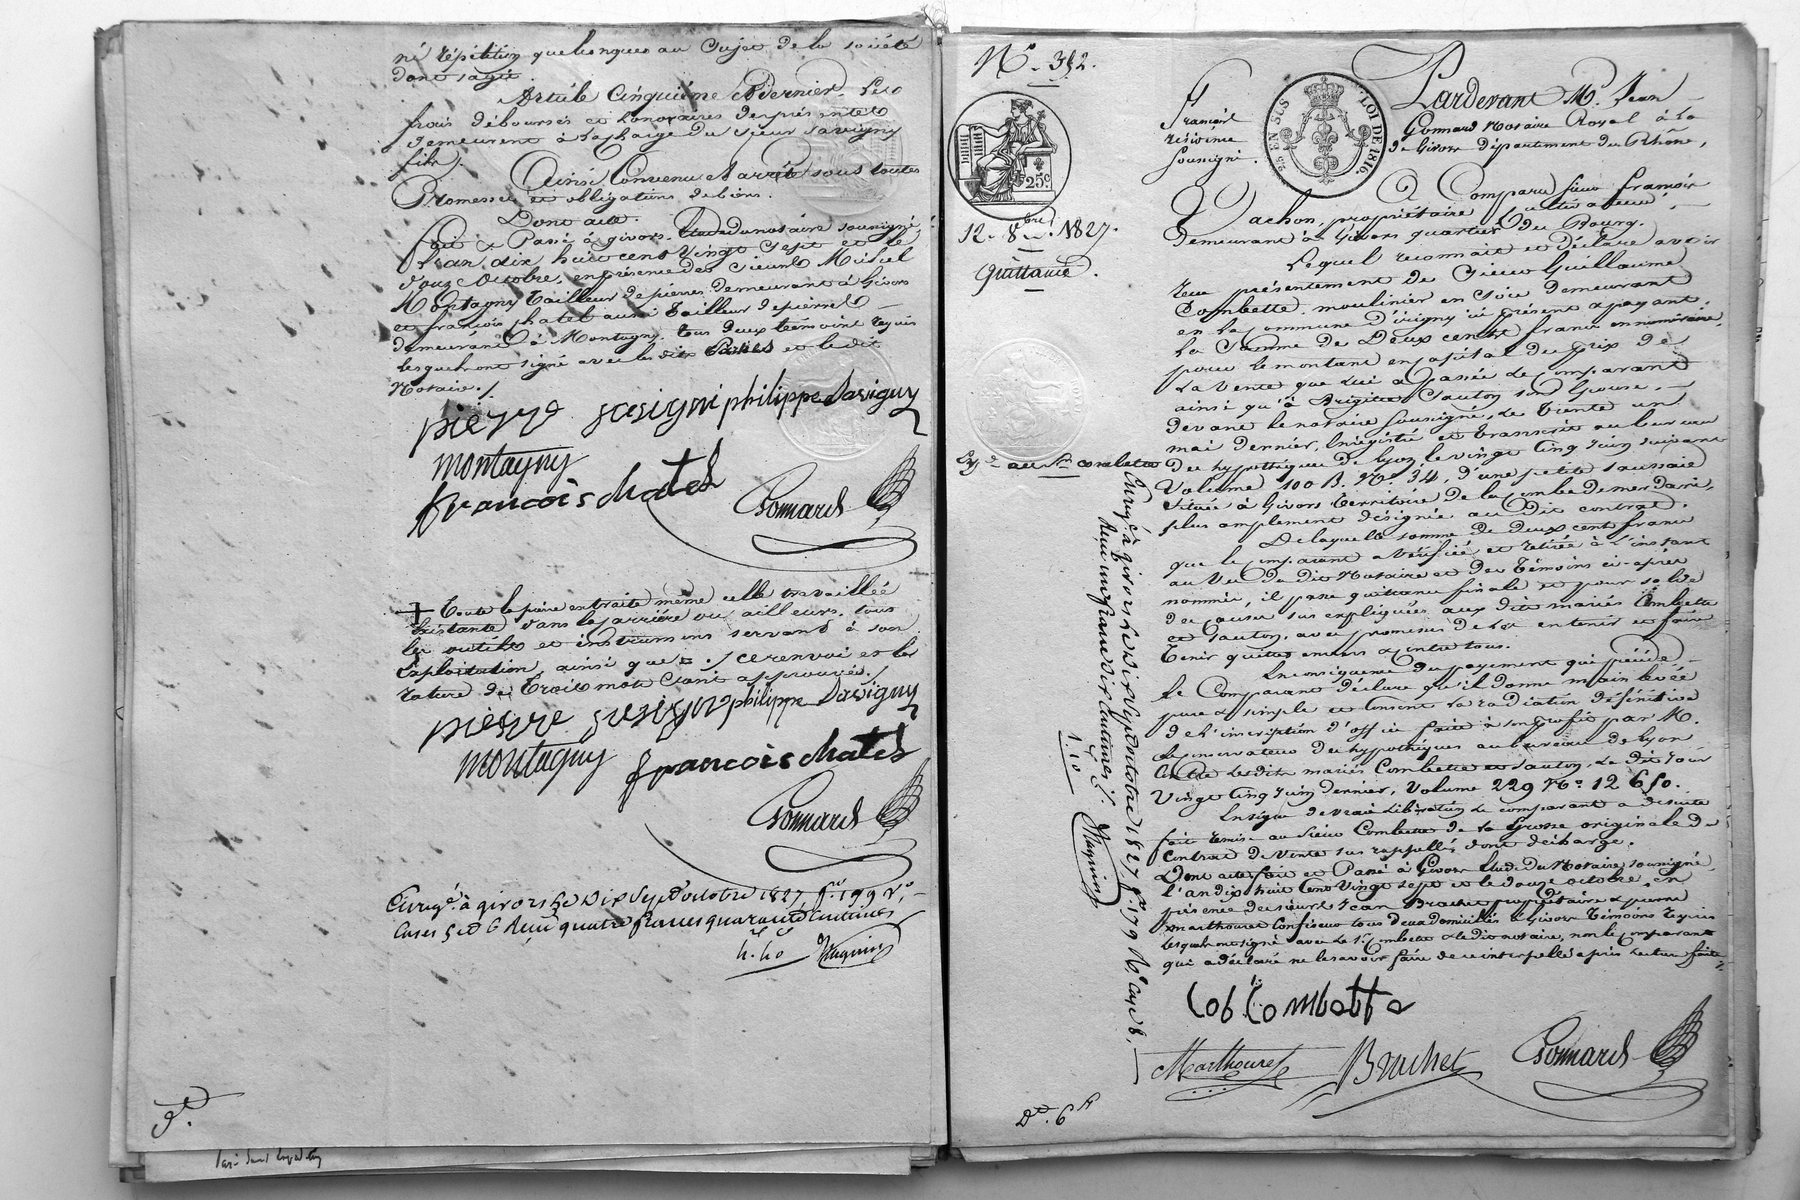 né répétition quelconques au Sujet de la société
dont sagit.
Article Cinquieme et Dernier. Les
frais déboursés et honoraires des présentes
demeurent à la charge du Sieur Savigny
fils.
Ainsi Convenu et arrêté sous toutes
Promesses et obligations de biens.
Dont acte.
fait et Passé à givors, Etude du notaire soussigné
l'an dix huit cent vingt sept et le
douze Octobre, en présence des Sieurs Michel
Montagny Tailleur de pierres demeurant à Givors
et françois chatel aussi Tailleur de pierres
demeurant à Montagny, tous deux témoins requis
lesquels ont signé avec les dites Parties et le dit
Notaire ./.
pierre savigni philippe Savigny
montagny
francois chatel
Gonnard
Toute la pierre extraite même celle travaillée
Existante dans la carrière ou ailleurs, tous
les outils et instrumens servant à son
Exploitation, ainsi que ./. ce renvoi et la
rature de trois mots étant approuvés.
pierre savigni philippe Savigny
montagny francois chatel
Gonnard
Enregé. à givors le Dix Sept octobre 1827, f° 199 v°,
Cases 5 et 6 Reçu quatre francs quarante Centimes
4.40
N° 352.
25c
12. 8bre. 1827.
Quittance.
françois
résidence
soussigné.
25 EN SUS LOI DE 1816.
Pardevant Me. Jean
Gonnard Notaire Royal à la
de Givors Département du Rhône,
A Comparu sieur françois
Vachon, propriétaire
Demeurant à Givors quartier du Bourg.
Lequel reconnait et déclare avoir
reçu présentement de Sieur Guillaume
Combette, moulinier en soie demeurant
en la commune d'irigny ici présent et payant.
La Somme de Deux cents francs en numéraire,
pour le montant en capital du prix de
La Vente que lui a passée le comparant
ainsi qu'à Brigitte Sauton son Epouse,
devant le notaire soussigné, le trente un
mai dernier, Enregistré et transcrit au bureau
des hypothèques de Lyon le vingt cinq juin suivant
Volume 100 B. N° 34, d'une petite saussaie
située à Givors territoire de la
plus amplement désignée au Dit contrat.
De laquelle somme de deux cent francs
que le comparant a vérifiée et retirée à l'instant
au Vu du dit Notaire et des témoins ci-après
nommés, il passe quittance finale et pour solde
des causes sus expliquées aux dits mariés Combette
et Sauton, avec promesse de les en tenir et faire
tenir quittes envers et contre tous.
En conséquence du payement qui précède
le Comparant déclare qu'il donne main levée
pure et simple et consent la radiation définitive
de l'inscription d'office faite à son profit par M.
le conservateur des hypothèques au bureau de Lyon
Contre les dits mariés Combette et Sauton, le dit jour
Vingt cinq juin dernier, volume 229 N° 12650.
En signe de vraie libération le comparant a de suite
fait remise au Sieur Combette de la Grosse originale du
Contrat de vente sus rappellé, dont décharge.
Dont acte, fait et Passé à Givors Etude du Notaire soussigné
l'an dix huit Cent Vingt sept et le douze octobre, en
présence des sieurs Jean Brachet propriétaire et pierre
Marthouret Confiseur tous deux domiciliés à Givors témoins requis
lesquels ont signé avec le Sr. Combette et le dit notaire, non le comparant
qui a déclaré ne le savoir faire de ce interpellé après lecture faite
Enregé. à Givors le Dix Sept octobre 1827 f° 199 v° case 8.
Reçu un franc dix centimes
1.10
Combette
Marthouret Brachet Gonnard